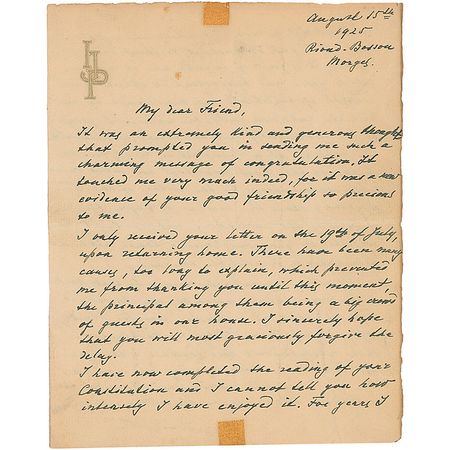 August 15th
1925
Riond-Bosson
Morges.
IJP
My dear Friend,
It was an extremely kind and generous thought
that prompted you in sending me such a
charming message of congratulation. It
touched me very much indeed, for it was a new
evidence of your good friendship so precious
to me.
I only received your letter on the 19th of July,
upon returning home. There have been many
causes, too long to explain, which prevented
me from thanking you until this moment,
the principal among them being a big crowd
of guests in our house. I sincerely hope
that you will most graciously forgive the
delay.
I have now completed the reading of your
Constitution and I cannot tell you how
intensely I have enjoyed it. For years I